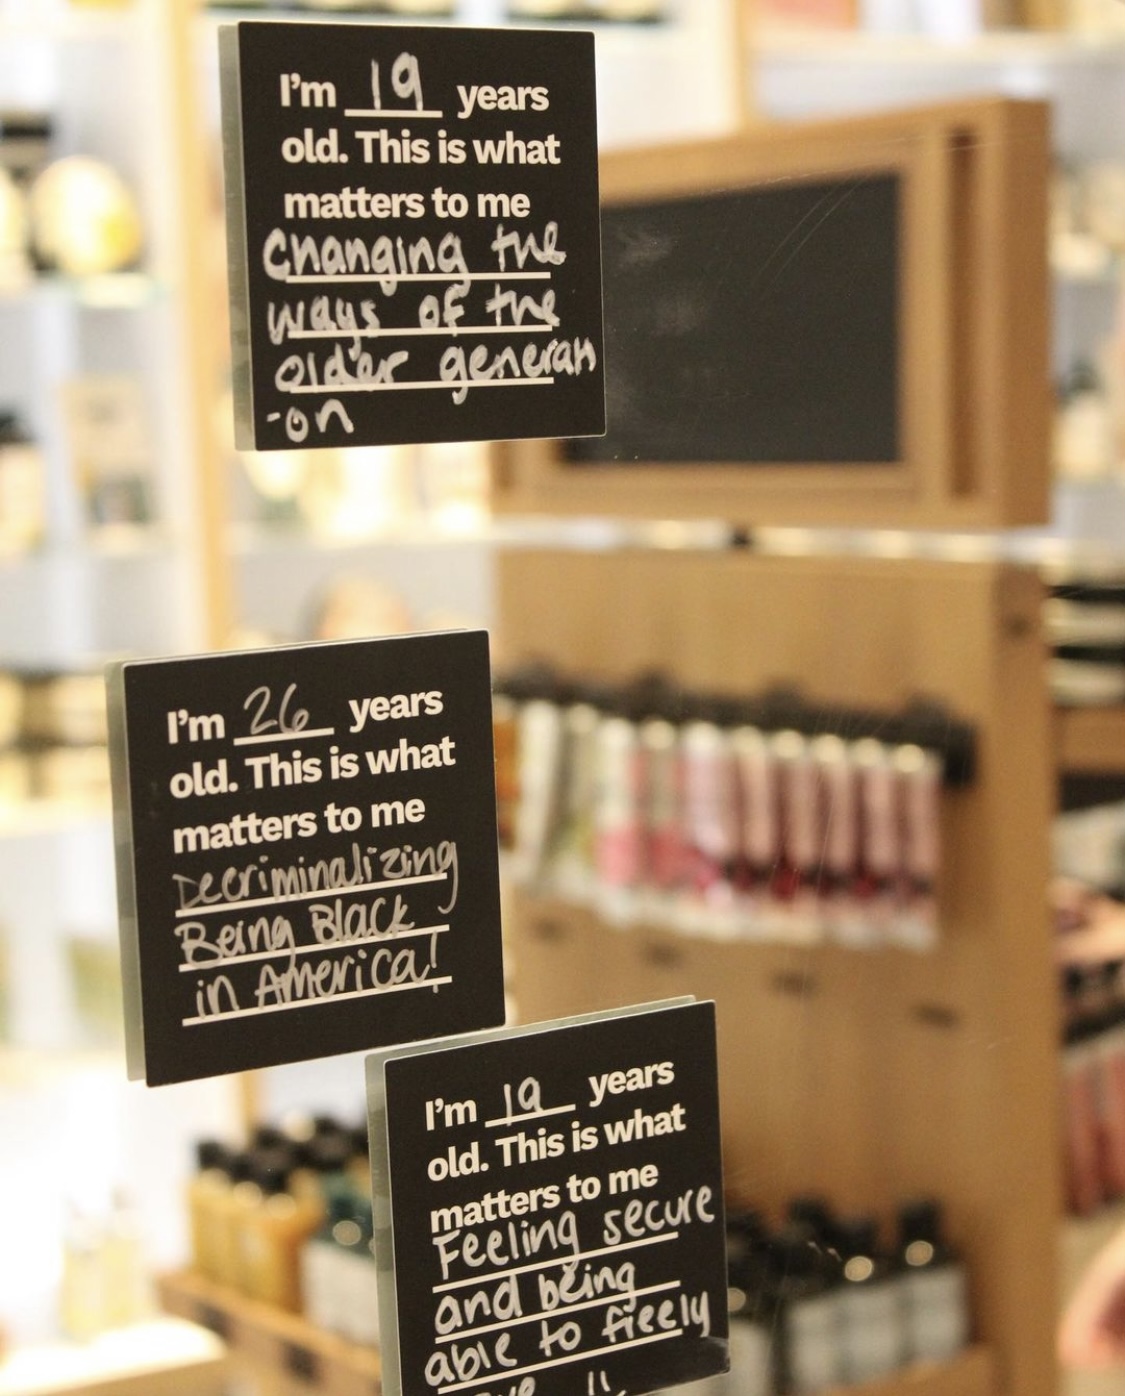 I'm 19 years
old. This is what
matters to me
Changing the
ways of the
older generati
-on
I'm 26 years
old. This is what
matters to me
Decriminalizing
Being Black
in America!
I'm 19 years
old. This is what
matters to me
Feeling secure
and being
able to freely